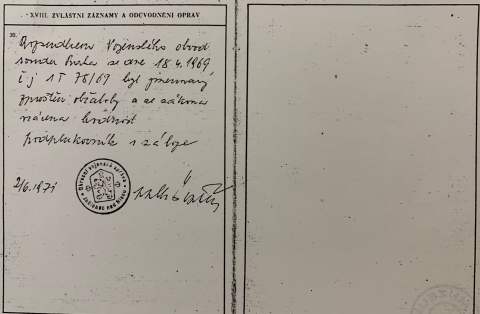 XVIII. ZVLÁŠTNÍ ZÁZNAMY A ODŮVODNĚNÍ OPRAV
30.
Rozsudkem Vojenského obvod.
soudu ze dne 18.4.1969
čj 1T 76/69 byl jmenovaný
zproštěn obžaloby a ze zákona
vrácena hodnost
podplukovník v záloze
2/6.1971
Okresní vojenská správa